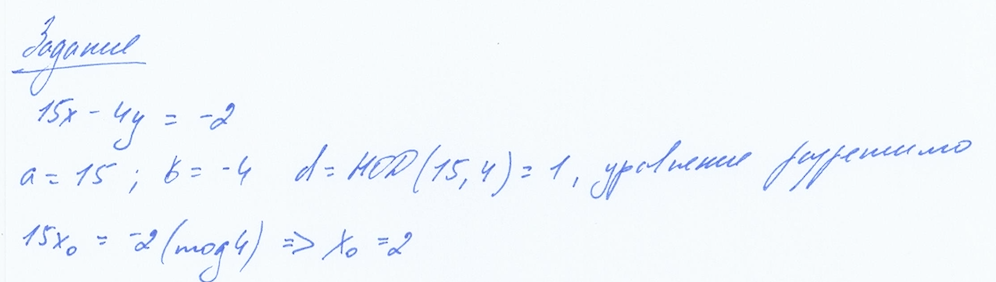 Задание
15x - 4y = -2
a = 15 ; b = -4 d = НОД(15, 4) = 1, уравнение разрешимо
15x₀ = -2 (mod 4) => x₀ = 2